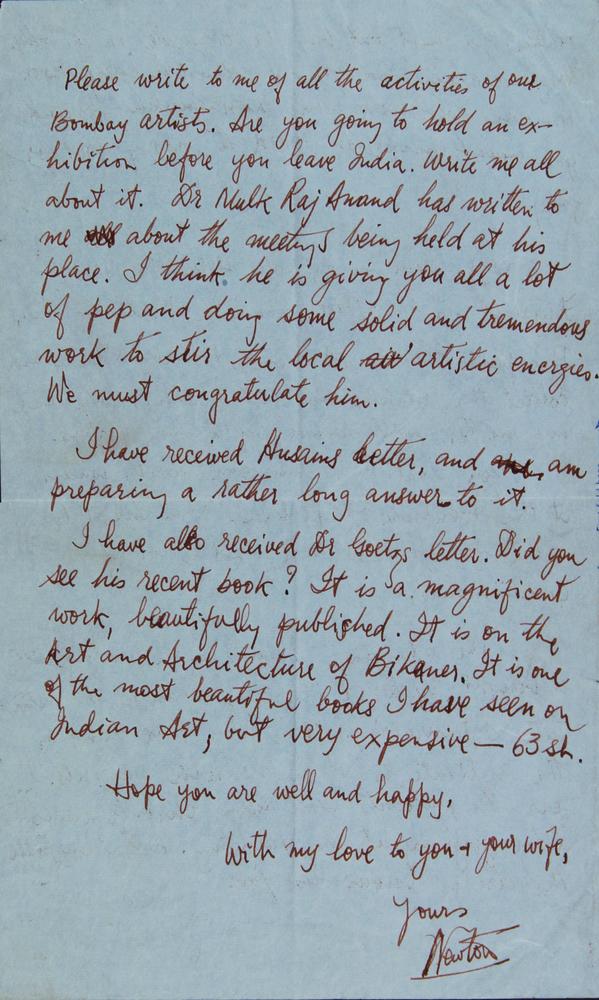 Please write to me of all the activities of our
Bombay artists. Are you going to hold an ex-
hibition before you leave India. Write me all
about it. Dr Mulk Raj Anand has written to
me about the meetings being held at his
place. I think he is giving you all a lot
of pep and doing some solid and tremendous
work to stir the local artistic energies.
We must congratulate him.
I have received Husains letter, and am
preparing a rather long answer to it.
I have also received Dr Goetzs letter. Did you
see his recent book? It is a magnificent
work, beautifully published. It is on the
Art and Architecture of Bikaner. It is one
of the most beautiful books I have seen on
Indian Art, but very expensive — 63 sh.
Hope you are well and happy.
With my love to you + your wife,
Yours
Newton